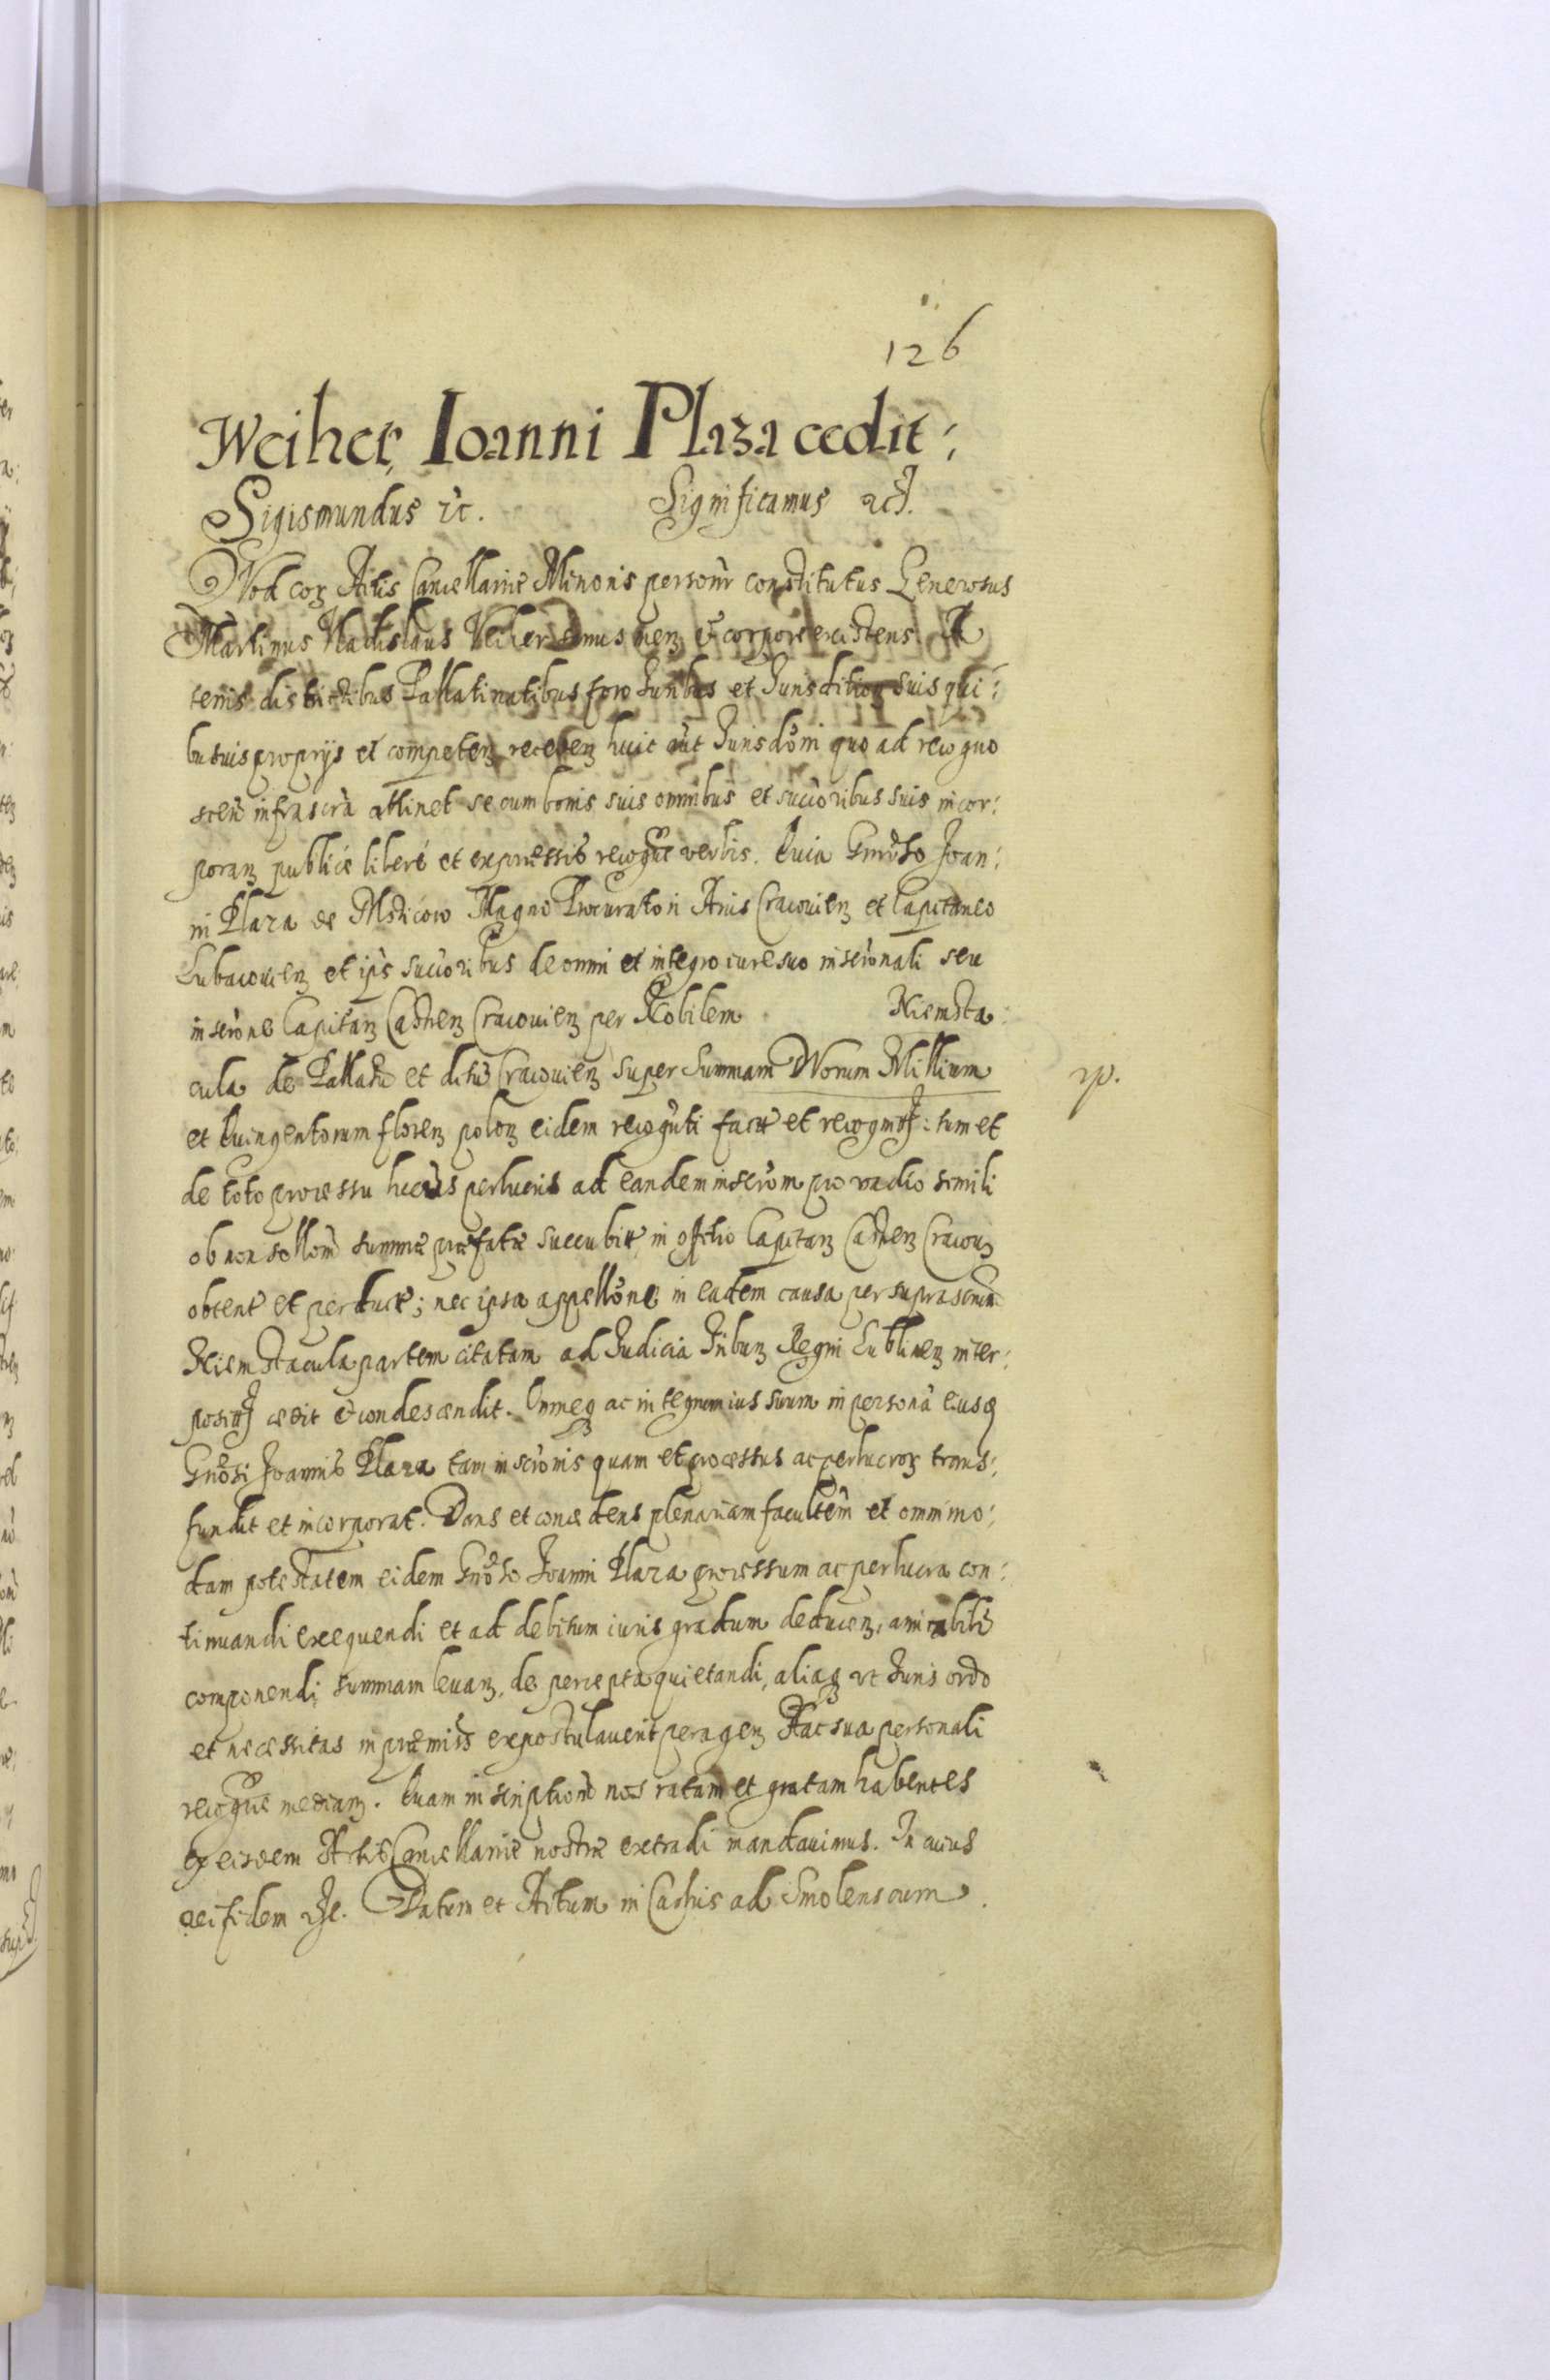 126
Weiher, Ioanni Plaza cedit;
Sigismundus etc. Significamus etc.
Quod cor Actis Cancellariæ Minoris personr constitutus Generosus
Martinus Vladislaus Veiher sanus men et corpore existens A
terris districtibus Pallatinatibus foro Juribus et Jurisdition suis qui:
busuis proprijs et competen receden huic aut Jurisdoni quo ad recogno
scen infrascra attinet se cum bonis suis omnibus et succoribus suis incor:
poran publice libere et expressis recogut verbis. Quia Gnroso Joan:
ni Plaza de Msticow Magno Procuratori Arcis Cracovien et Capitaneo
Lubacovien et ips succoribus de omni et integro iure suo inscronali seu
inscrone Capitan Castren Cracovien per Nobilem Niemsta:
cula de Pallatu et dictu Cracovien super summam Novem Millium
et Quingentorum floren polon eidem recoguti factr et recognit: tum et
de toto processu lucris perlucris ad eandem inscrom pro vadio simili
ob non sollom summæ præfatæ succubitr in offitio Capitan Castren Cracovien
obtent et perduct; nec ipsa appellone in eadem causa per suprascrun
Niemstacula partem citatam ad Judicia Tribun Regni Lublinen inter:
posit cedit et condescendit. Omneq ac integrum ius suum in personam eiusq
Gnosi Joannis Plaza tam inscronis quam et processus ac perlucror trans:
fundit et incorporat. Dans et concedens plenariam facultem et omnimo:
dam potestatem eidem Gnoso Joanni Plaza processum ac perlucra con:
tinuandi exequendi et ad debitum iuris gradum deducen, amicabilr
componendi summam levan, de percepta quietandi, aliaq ut Juris ordo
et necessitas in præmiss expostulaverit peragen Hac sua personali
recogne median. Quam inscriptionem nos ratam et gratam habentes
ex eisdem Actis Cancellariæ nostræ extradi mandavimus. In cuius
rei fidem etc. Datum et Actum in Castris ad Smolenscum.